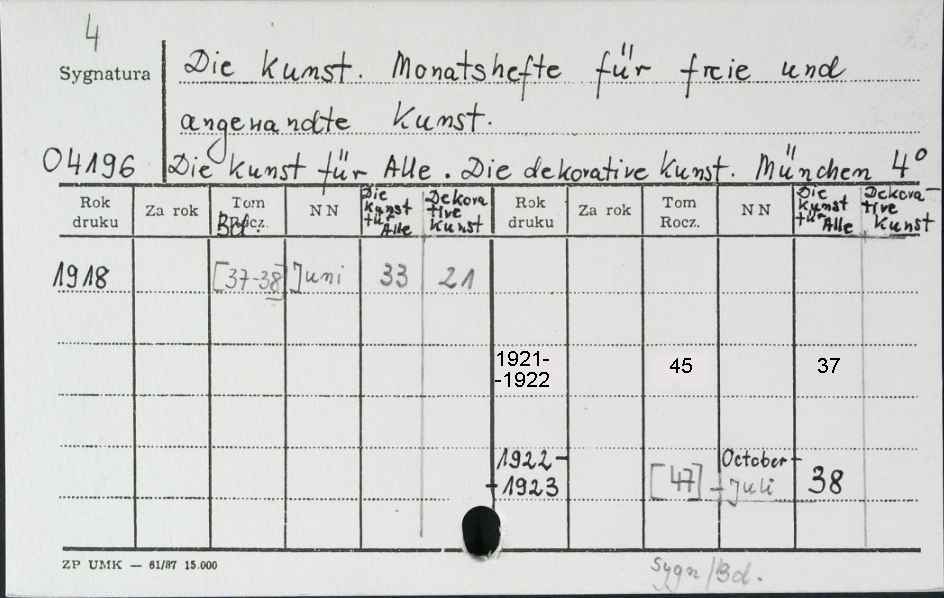 4
Sygnatura
Die Kunst. Monatshefte für freie und
angewandte Kunst.
04196
Die Kunst für Alle. Die dekorative Kunst. München 4°
Rok druku Za rok Tom Rocz. Bd. NN Die Kunst für Alle Dekorative Kunst Rok druku Za rok Tom Rocz. NN Die Kunst für Alle Dekora-tive Kunst
1918 [37-38] Juni 33 21
1921-
-1922 45 37
1922- October-
-1923 [47] -Juli 38
ZP UMK — 61/87 15.000
Sygn/Bd.